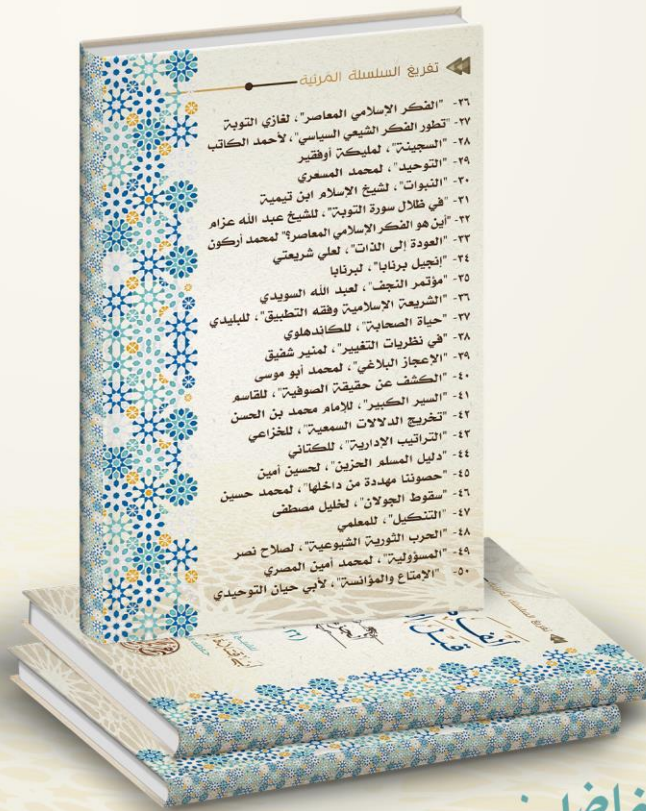 تفريغ السلسلة المرئية
٢٦- "الفكر الإسلامي المعاصر"، لغازي التوبة
٢٧- "تطور الفكر الشيعي السياسي"، لأحمد الكاتب
٢٨- "السجينة"، لمليكة أوفقير
٢٩- "التوحيد"، لمحمد المسعري
٣٠- "النبوات"، لشيخ الإسلام ابن تيمية
٣١- "في ظلال سورة التوبة"، للشيخ عبد الله عزام
٣٢- "أين هو الفكر الإسلامي المعاصر؟" لمحمد أركون
٣٣- "العودة إلى الذات"، لعلي شريعتي
٣٤- "إنجيل برنابا"، لبرنابا
٣٥- "مؤتمر النجف"، لعبد الله السويدي
٣٦- "الشريعة الإسلامية وفقه التطبيق"، للبليدي
٣٧- "حياة الصحابة"، للكاندهلوي
٣٨- "في نظريات التغيير"، لمنير شفيق
٣٩- "الإعجاز البلاغي"، لمحمد أبو موسى
٤٠- "الكشف عن حقيقة الصوفية"، للقاسم
٤١- "السير الكبير"، للإمام محمد بن الحسن
٤٢- "تخريج الدلالات السمعية"، للخزاعي
٤٣- "التراتيب الإدارية"، للكتاني
٤٤- "دليل المسلم الحزين"، لحسين أمين
٤٥- "حصوننا مهددة من داخلها"، لمحمد حسين
٤٦- "سقوط الجولان"، لخليل مصطفى
٤٧- "التنكيل"، للمعلمي
٤٨- "الحرب الثورية الشيوعية"، لصلاح نصر
٤٩- "المسؤولية"، لمحمد أمين المصري
٥٠- "الإمتاع والمؤانسة"، لأبي حيان التوحيدي
تفريغ السلسلة المرئية